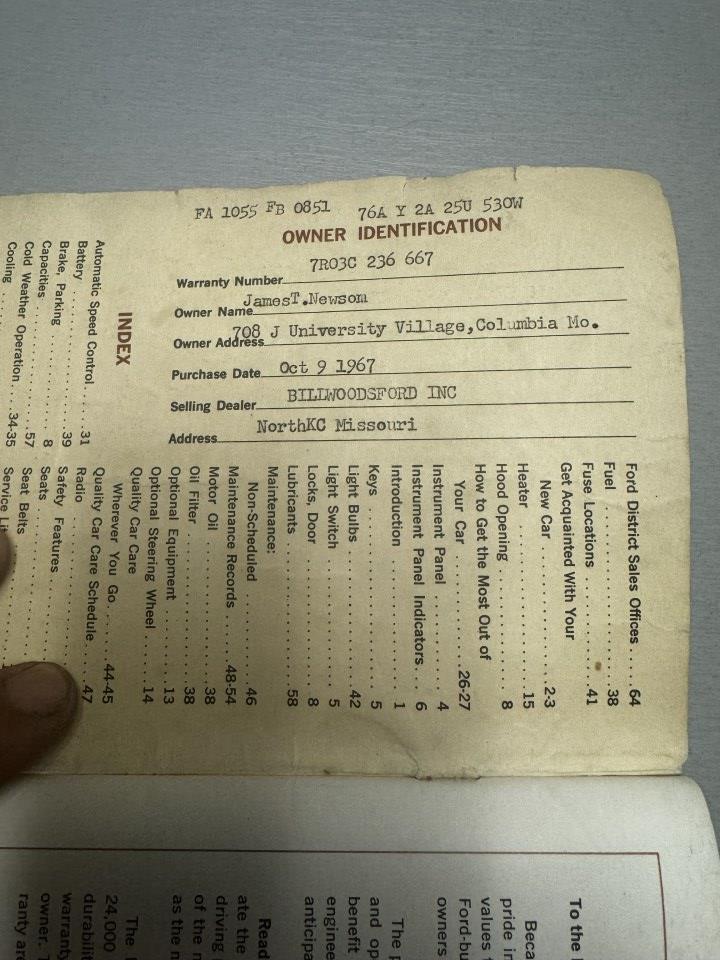 FA 1055 FB 0851 76A Y 2A 25U 530W
OWNER IDENTIFICATION
Warranty Number 7R03C 236 667
Owner Name JamesT.Newsom
Owner Address 708 J University Village,Columbia Mo.
Purchase Date Oct 9 1967
Selling Dealer BILLWOODSFORD INC
Address NorthKC Missouri
INDEX
Automatic Speed Control......31
Battery
Brake, Parking..........39
Capacities..........8
Cold Weather Operation....57
Cooling.....34-35
Ford District Sales Offices....64
Fuel..........38
Fuse Locations......41
Get Acquainted With Your
New Car..........2-3
Heater..........15
Hood Opening..........8
How to Get the Most Out of
Your Car..........26-27
Instrument Panel..........4
Instrument Panel Indicators...6
Introduction..........1
Keys..........5
Light Bulbs..........42
Light Switch..........5
Locks, Door..........8
Lubricants..........58
Maintenance:
Non-Scheduled..........46
Maintenance Records....48-54
Motor Oil..........38
Oil Filter..........38
Optional Equipment..........13
Optional Steering Wheel......14
Quality Car Care
Wherever You Go.......44-45
Quality Car Care Schedule....47
Radio
Safety Features
Seats
Seat Belts
Service
To the
Beca
pride in
values
Ford-bu
owners
The
and op
benefit
enginee
anticipa
Read
ate the
driving
of the
as the
The
24,000
durabili
warranty
owner.
ranty are